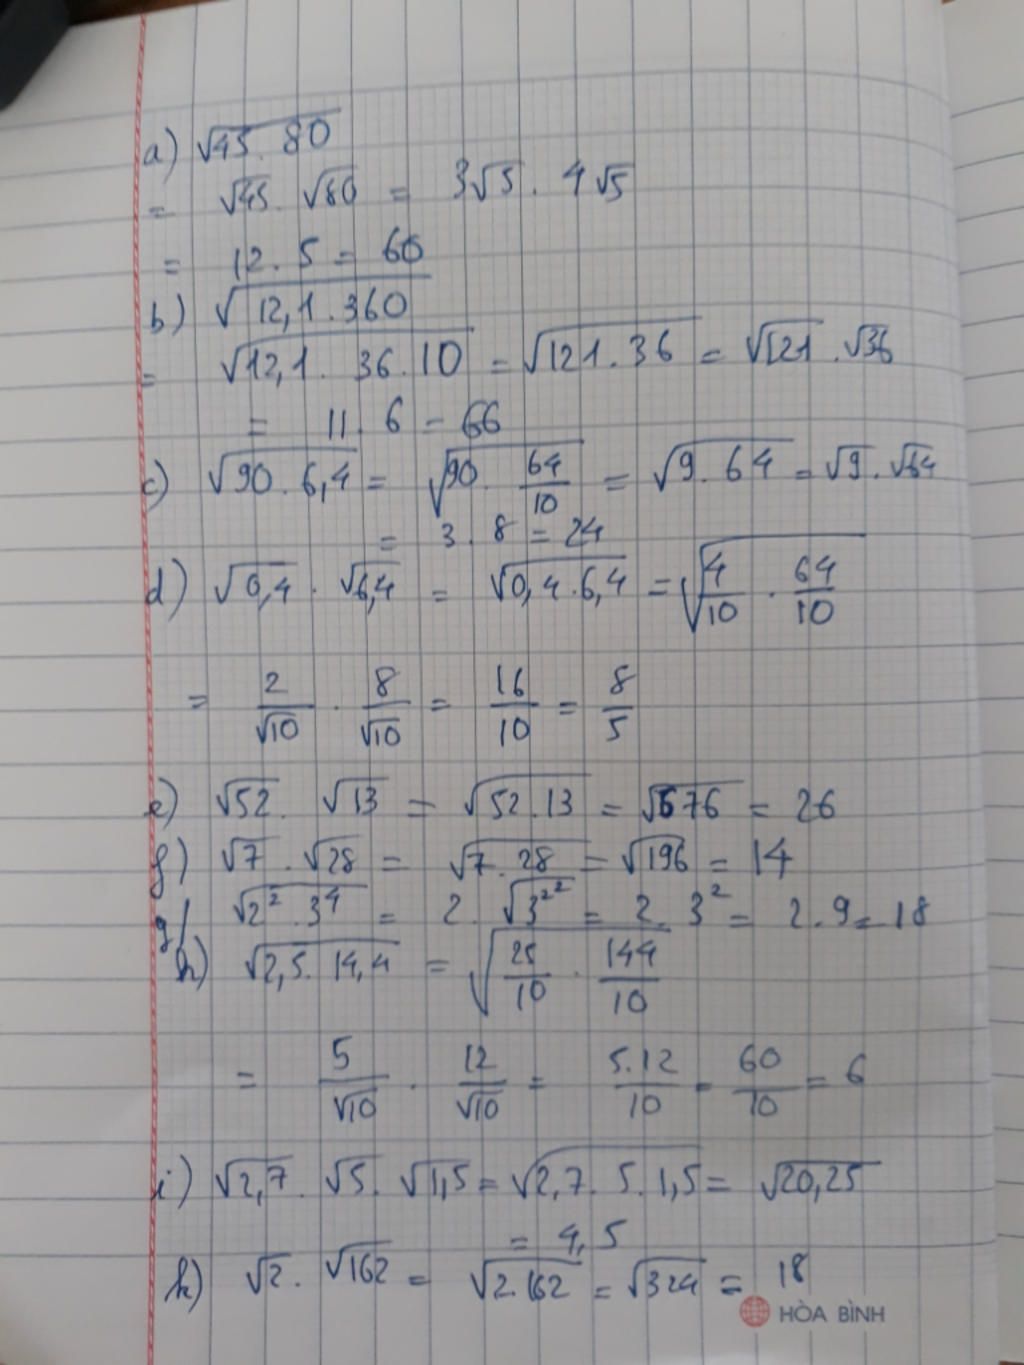 a) √45.80
= √45. √80 = 3√5. 4√5
= 12.5 = 60
b) √12,1.360
= √12,1. 36.10 = √121.36 = √121.√36
= 11.6 = 66
c) √90.6,4 = √90. 64/10 = √9.64 = √9.√64
= 3.8 = 24
d) √0,4. √6,4 = √0,4.6,4 = √4/10 . 64/10
= 2/√10 . 8/√10 = 16/10 = 8/5
e) √52. √13 = √52.13 = √676 = 26
f) √7.√28 = √7.28 = √196 = 14
g) √2².3⁴ = 2. √3²² = 2. 3² = 2.9 = 18
h) √2,5. 14,4 = √25/10 . 144/10
= 5/√10 . 12/√10 = 5.12/10 = 60/10 = 6
i) √2,7. √5. √1,5 = √2,7. 5.1,5 = √20,25
= 4,5
k) √2. √162 = √2.162 = √324 = 18
HÒA BÌNH